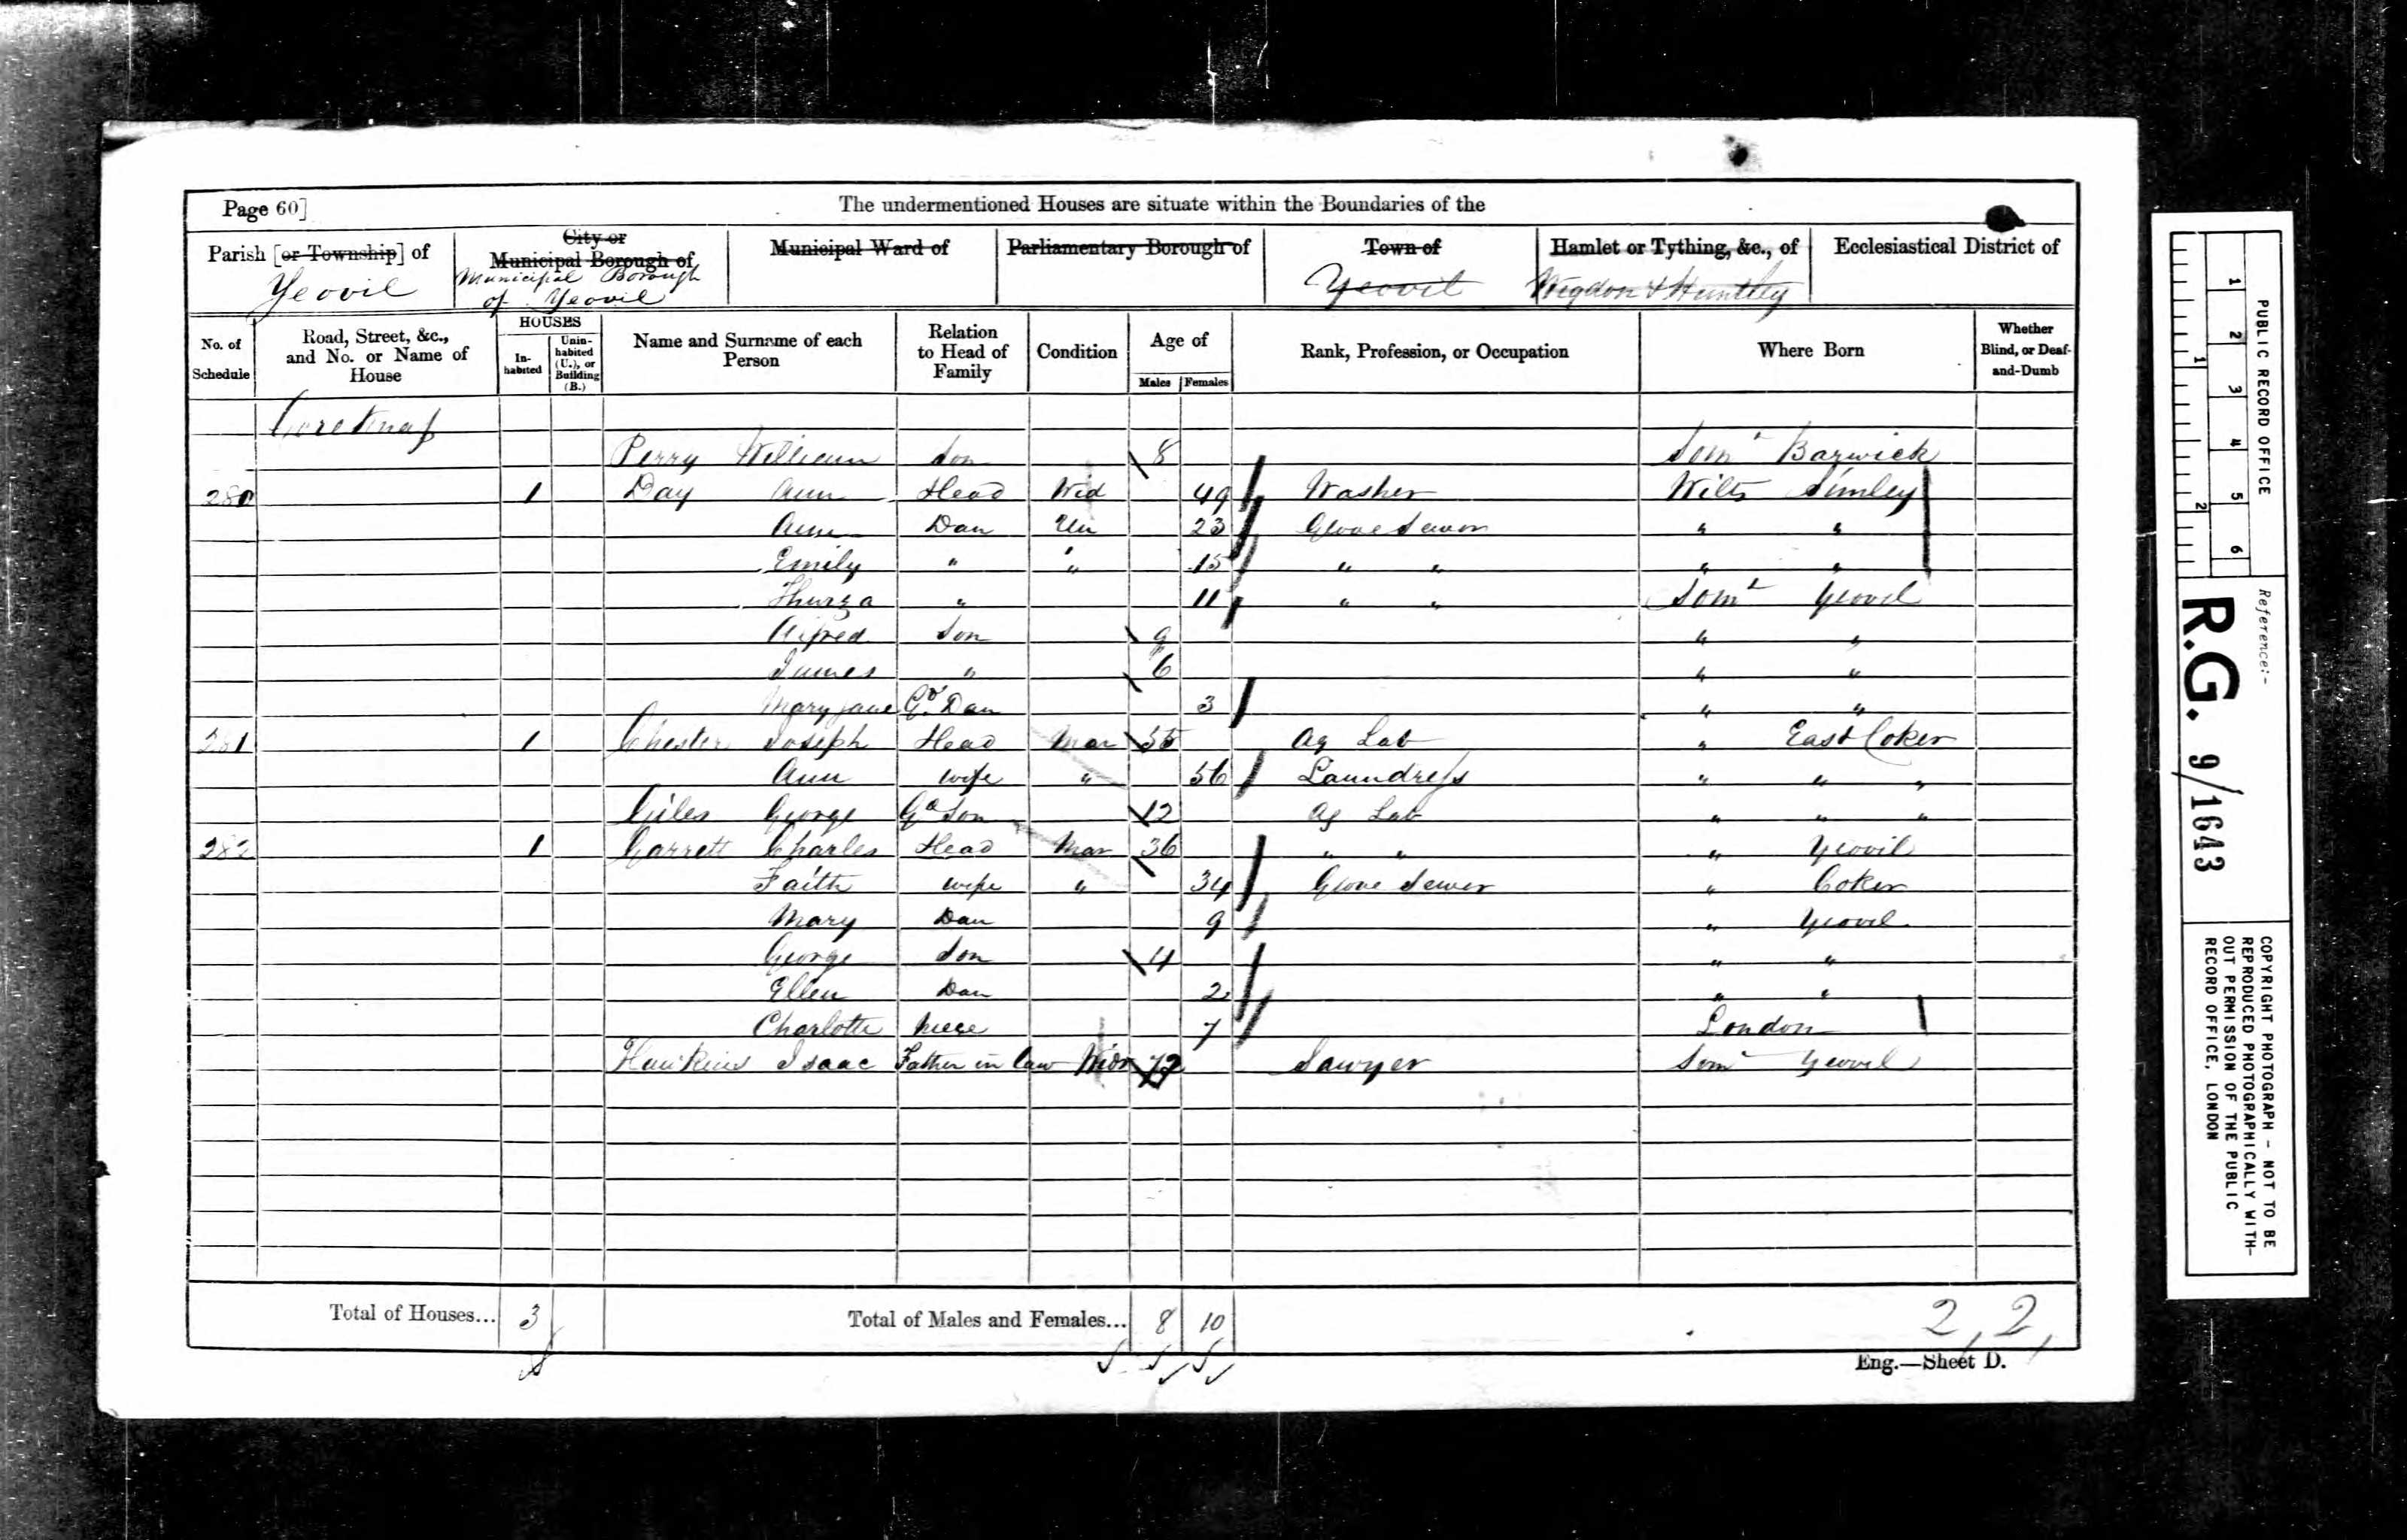 Page 60]
The undermentioned Houses are situate within the Boundaries of the
Parish [or Township] of Yeovil
City or Municipal Borough of Municipal Borough of Yeovil
Municipal Ward of
Parliamentary Borough of
Town of Yeovil
Hamlet or Tything, &c., of
Ecclesiastical District of
No. of Schedule
Road, Street, &c., and No. or Name of House
HOUSES
Inhabited
Uninhabited (U.), or Building (B.)
Name and Surname of each Person
Relation to Head of Family
Condition
Age of
Males
Females
Rank, Profession, or Occupation
Where Born
Whether Blind, or Deaf-and-Dumb
Perry William Son 8 Somt Barwick
280 1 Day Ann Head Wid 49 Washer Wilts
Ann Dau Un 23 Glove Sewer " "
Emily " " 15 " " " "
Thurza " 11 " " Somt Yeovil
Alfred Son 9 " "
James " 6 " "
Mary Jane Gd Dau 3 " "
281 1 Chester Joseph Head Mar 55 Ag Lab " East Coker
Ann wife " 56 Laundress " " "
Giles George Gd Son 12 Ag Lab " " "
282 1 Garrett Charles Head Mar 36 " " " Yeovil
Faith wife " 34 Glove Sewer " Coker
Mary Dau 9 " Yeovil
George Son 4 " "
Ellen Dau 2 " "
Charlotte Niece 7 London
Hawkins Isaac Father in law Widr 72 Sawyer Somt Yeovil
Total of Houses... 3
Total of Males and Females... 8 10
2, 2,
Eng.—Sheet D.
1 2 3 4 5 6
1 2
PUBLIC RECORD OFFICE
Reference:-
R.G. 9/1643
COPYRIGHT PHOTOGRAPH - NOT TO BE
REPRODUCED PHOTOGRAPHICALLY WITH-
OUT PERMISSION OF THE PUBLIC
RECORD OFFICE, LONDON